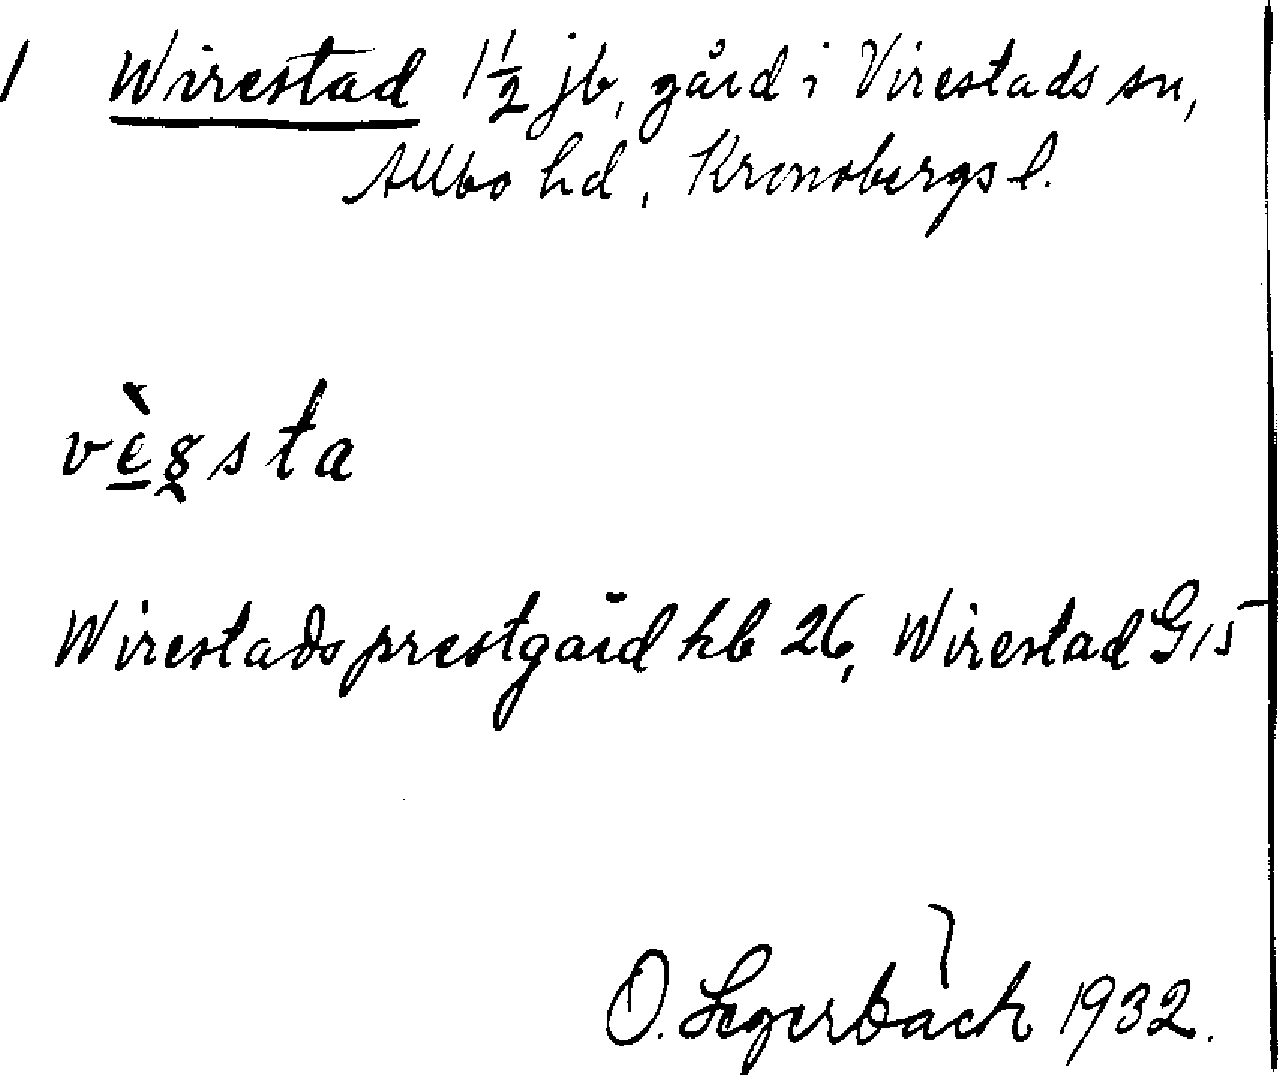 1 Wirestad 1 1/2 jb, gård i Virestads sn,
Allbo hd, Kronobergs l.
Wirestads prestgård hb 26, Wirestad G 15
O. Segerbäck 1932.